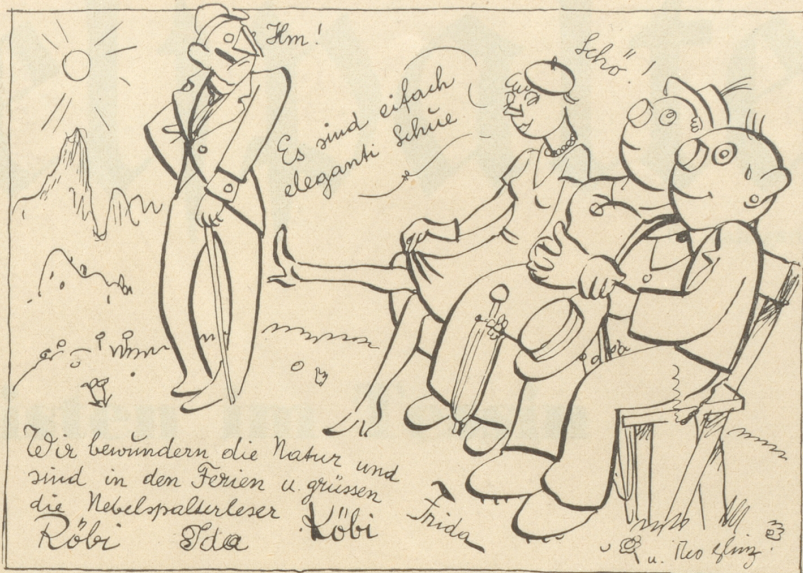 Hm!
Schö!
Es sind eifach
eleganti Schue
Wir bewundern die Natur und
sind in den Ferien u. grüssen
die Nebelspalterleser
Röbi Ida Köbi Frida
u.